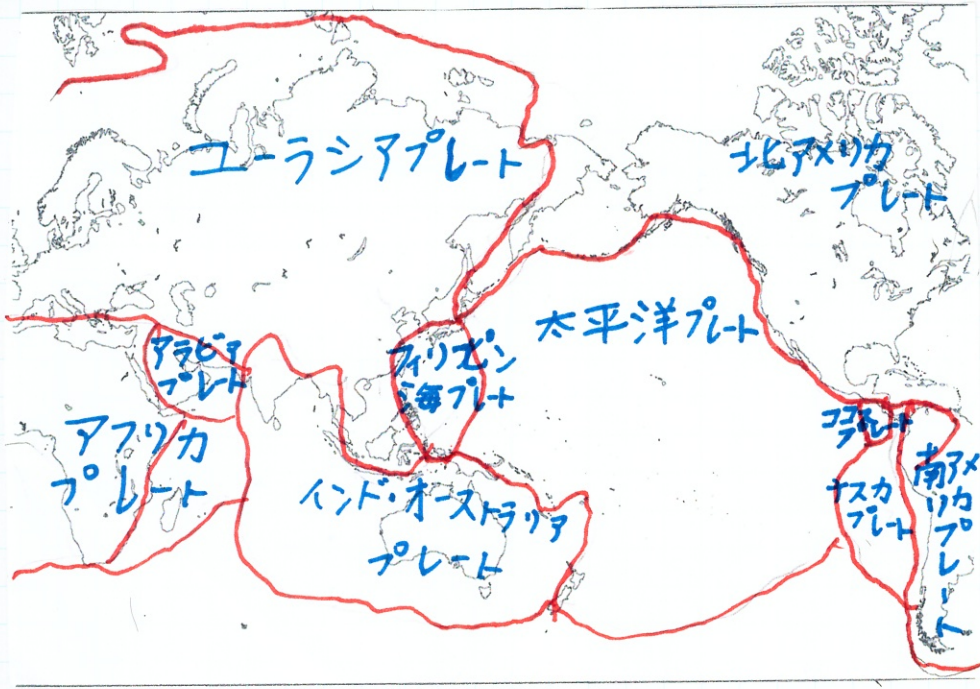 ユーラシアプレート
北アメリカ
プレート
太平洋プレート
フィリピン
海プレート
アラビア
プレート
アフリカ
プレート
インド・オーストラリア
プレート
ココス
プレート
ナスカ
プレート
南アメ
リカプレート